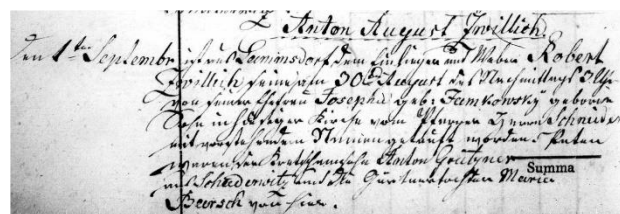 Anton August Zwillich
den 1ten Septembr ist aus Lammsdorf dem Einlieger und Weber Robert
Zwillich sein am 30ten August des Nachmittags 3 Uhr
von seiner Ehefrau Josepha geb: Jamkowsky geborne
Sohn in hiesiger Kirche vom Pfarrer Herrn Schneider
mit vorstehenden Namen getauft worden. Paten
waren der Anton Goltzner
aus Schaderwitz und die Gärtnertochter Maria
Beersch von hier.
Summa